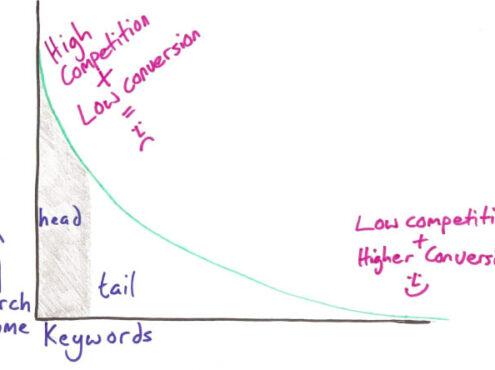 High
Competition
+
Low conversion
=
head
tail
Low competiti
+
Higher Conversi
rch
me
Keywords